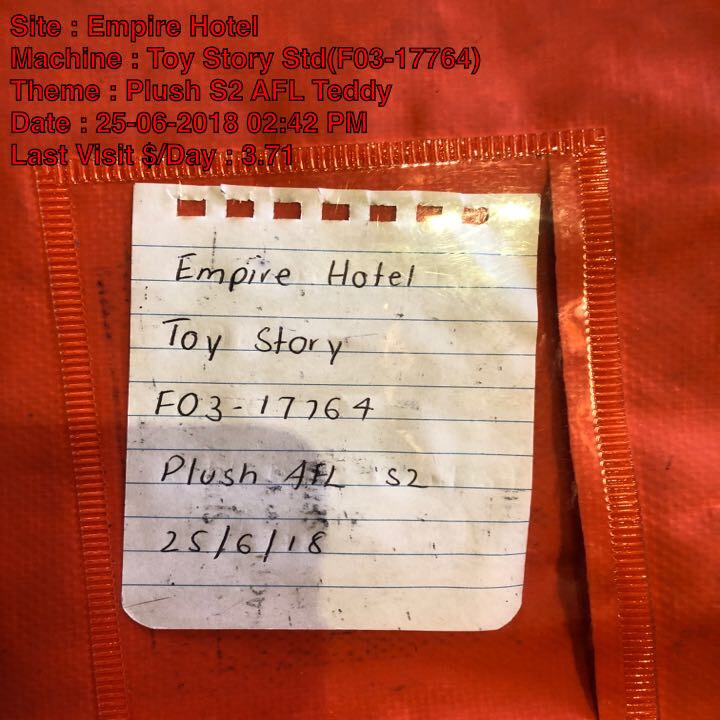 Site : Empire Hotel
Machine : Toy Story Std(F03-17764)
Theme : Plush S2 AFL Teddy
Date : 25-06-2018 02:42 PM
Last Visit $/Day : 3.71
Empire Hotel
Toy Story
F03-17764
Plush AFL S2
25/6/18